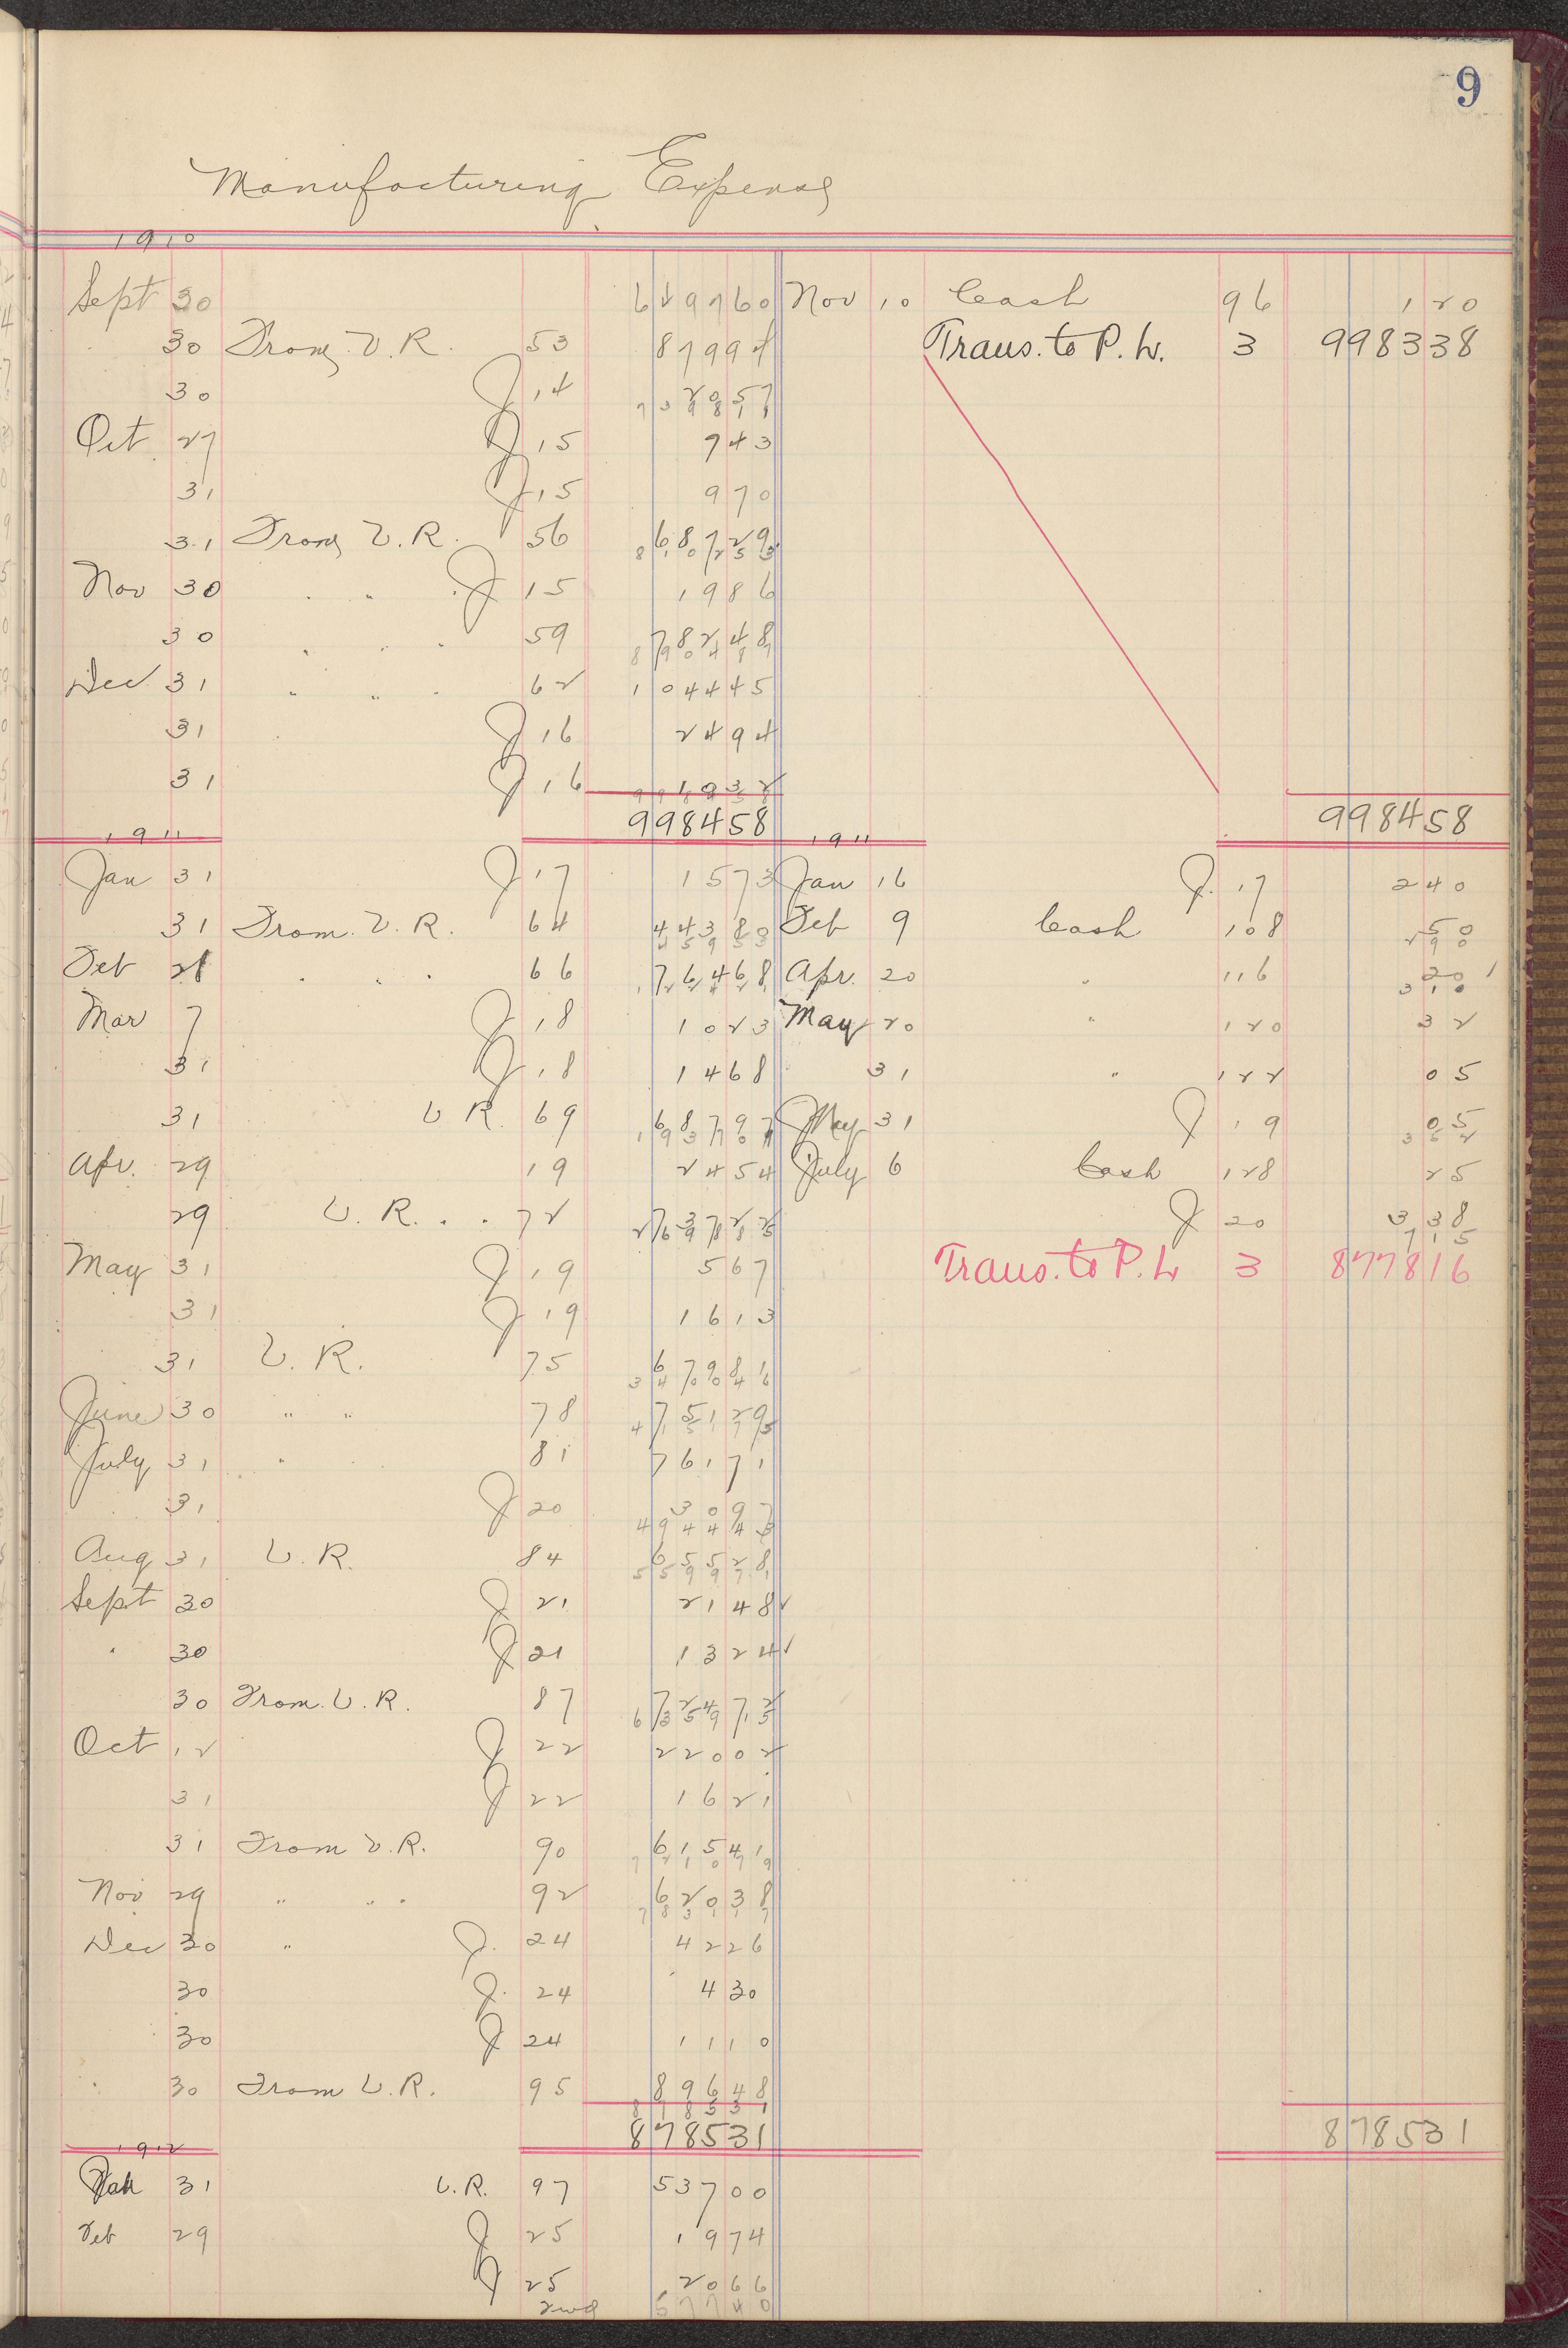 9
Manufacturing Expense
1910
Sept 30 629760 Nov 10 Cash 96 120
30 From V.R. 53 87994 Trans. to P. L. 3 998338
30 J 14 2057
739811
Oct 27 J 15 743
31 J 15 970
31 From V.R. 56 68729
810253
Nov 30 " " J 15 1986
30 " " " 59 78248
890487
Dec 31 " " " 62 104445
31 J 16 2494
31 J 16 1032
998458
998458 998458
1911 1911
Jan 31 J 17 1573 Jan 16 J. 17 240
31 From V.R. 64 44380 Feb 9 Cash 108 50
45953 290
Feb 28 " " " 66 76468 Apr. 20 " 116 20
122421 310
Mar 7 J 18 1023 May 20 " 120 32
31 J 18 1468 31 " 122 05
31 V R. 69 68797 May 31 J 19 05
193709 352
Apr. 29 19 2454 July 6 Cash 128 25
29 V. R. 72 73722 J 20 338
269885 715
May 31 J 19 567 Trans. to P. L 3 877816
31 J 19 1613
31 V. R. 75 67981
340046
June 30 " " 78 75129
415175
July 31 " 81 76171
31 J 20 3097
494443
Aug 31 V. R. 84 65528
559971
Sept 30 J 21 2148
" 30 J 21 1324
30 From V. R. 87 72472
635915
Oct 12 J 22 22002
31 J 22 1621
31 From V.R. 90 61541
721079
Nov 29 " " " 92 62038
783117
Dec 30 " J. 24 4226
30 J. 24 430
30 J 24 1110
30 From V.R. 95 89648
878531
878531 878531
1912
Jan 31 V.R. 97 53700
Feb 29 J 25 1974
J 25 2066
57740